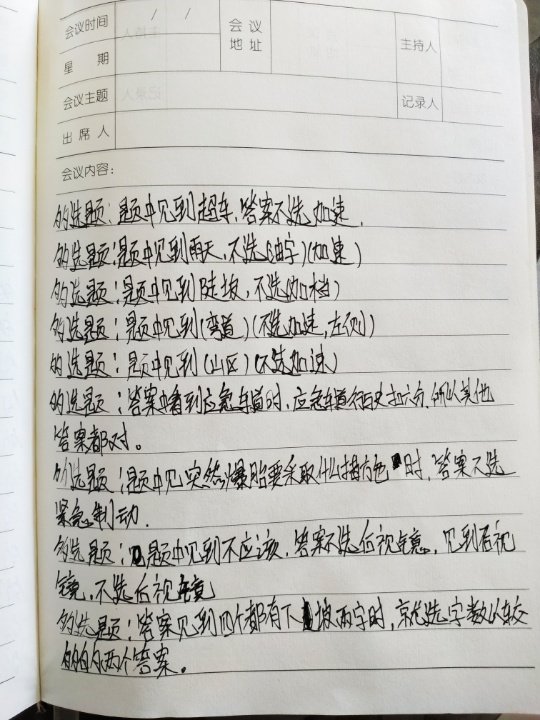 会议时间 / /
会议地址
主持人
星期
会议主题
记录人
出席人
会议内容：
多选题：题中见到超车，答案不选加速.
多选题：题中见到雨天，不选(油字)(加速)
多选题：题中见到陡坡，不选(加档)
多选题：题中见到(弯道)(不选加速,左侧)
多选题：题中见到(山区)(不选加速)
多选题：答案中看到应急车道时，应急车道行驶扣分，所以其他
答案都对。
多选题：题中见突然爆胎要采取什么措施时，答案不选
紧急制动.
多选题：题中见到不应该，答案不选后视镜，见到后视
镜，不选后视镜
多选题：答案见到四个都有下坡两字时，就选字数比较
多的两个答案。